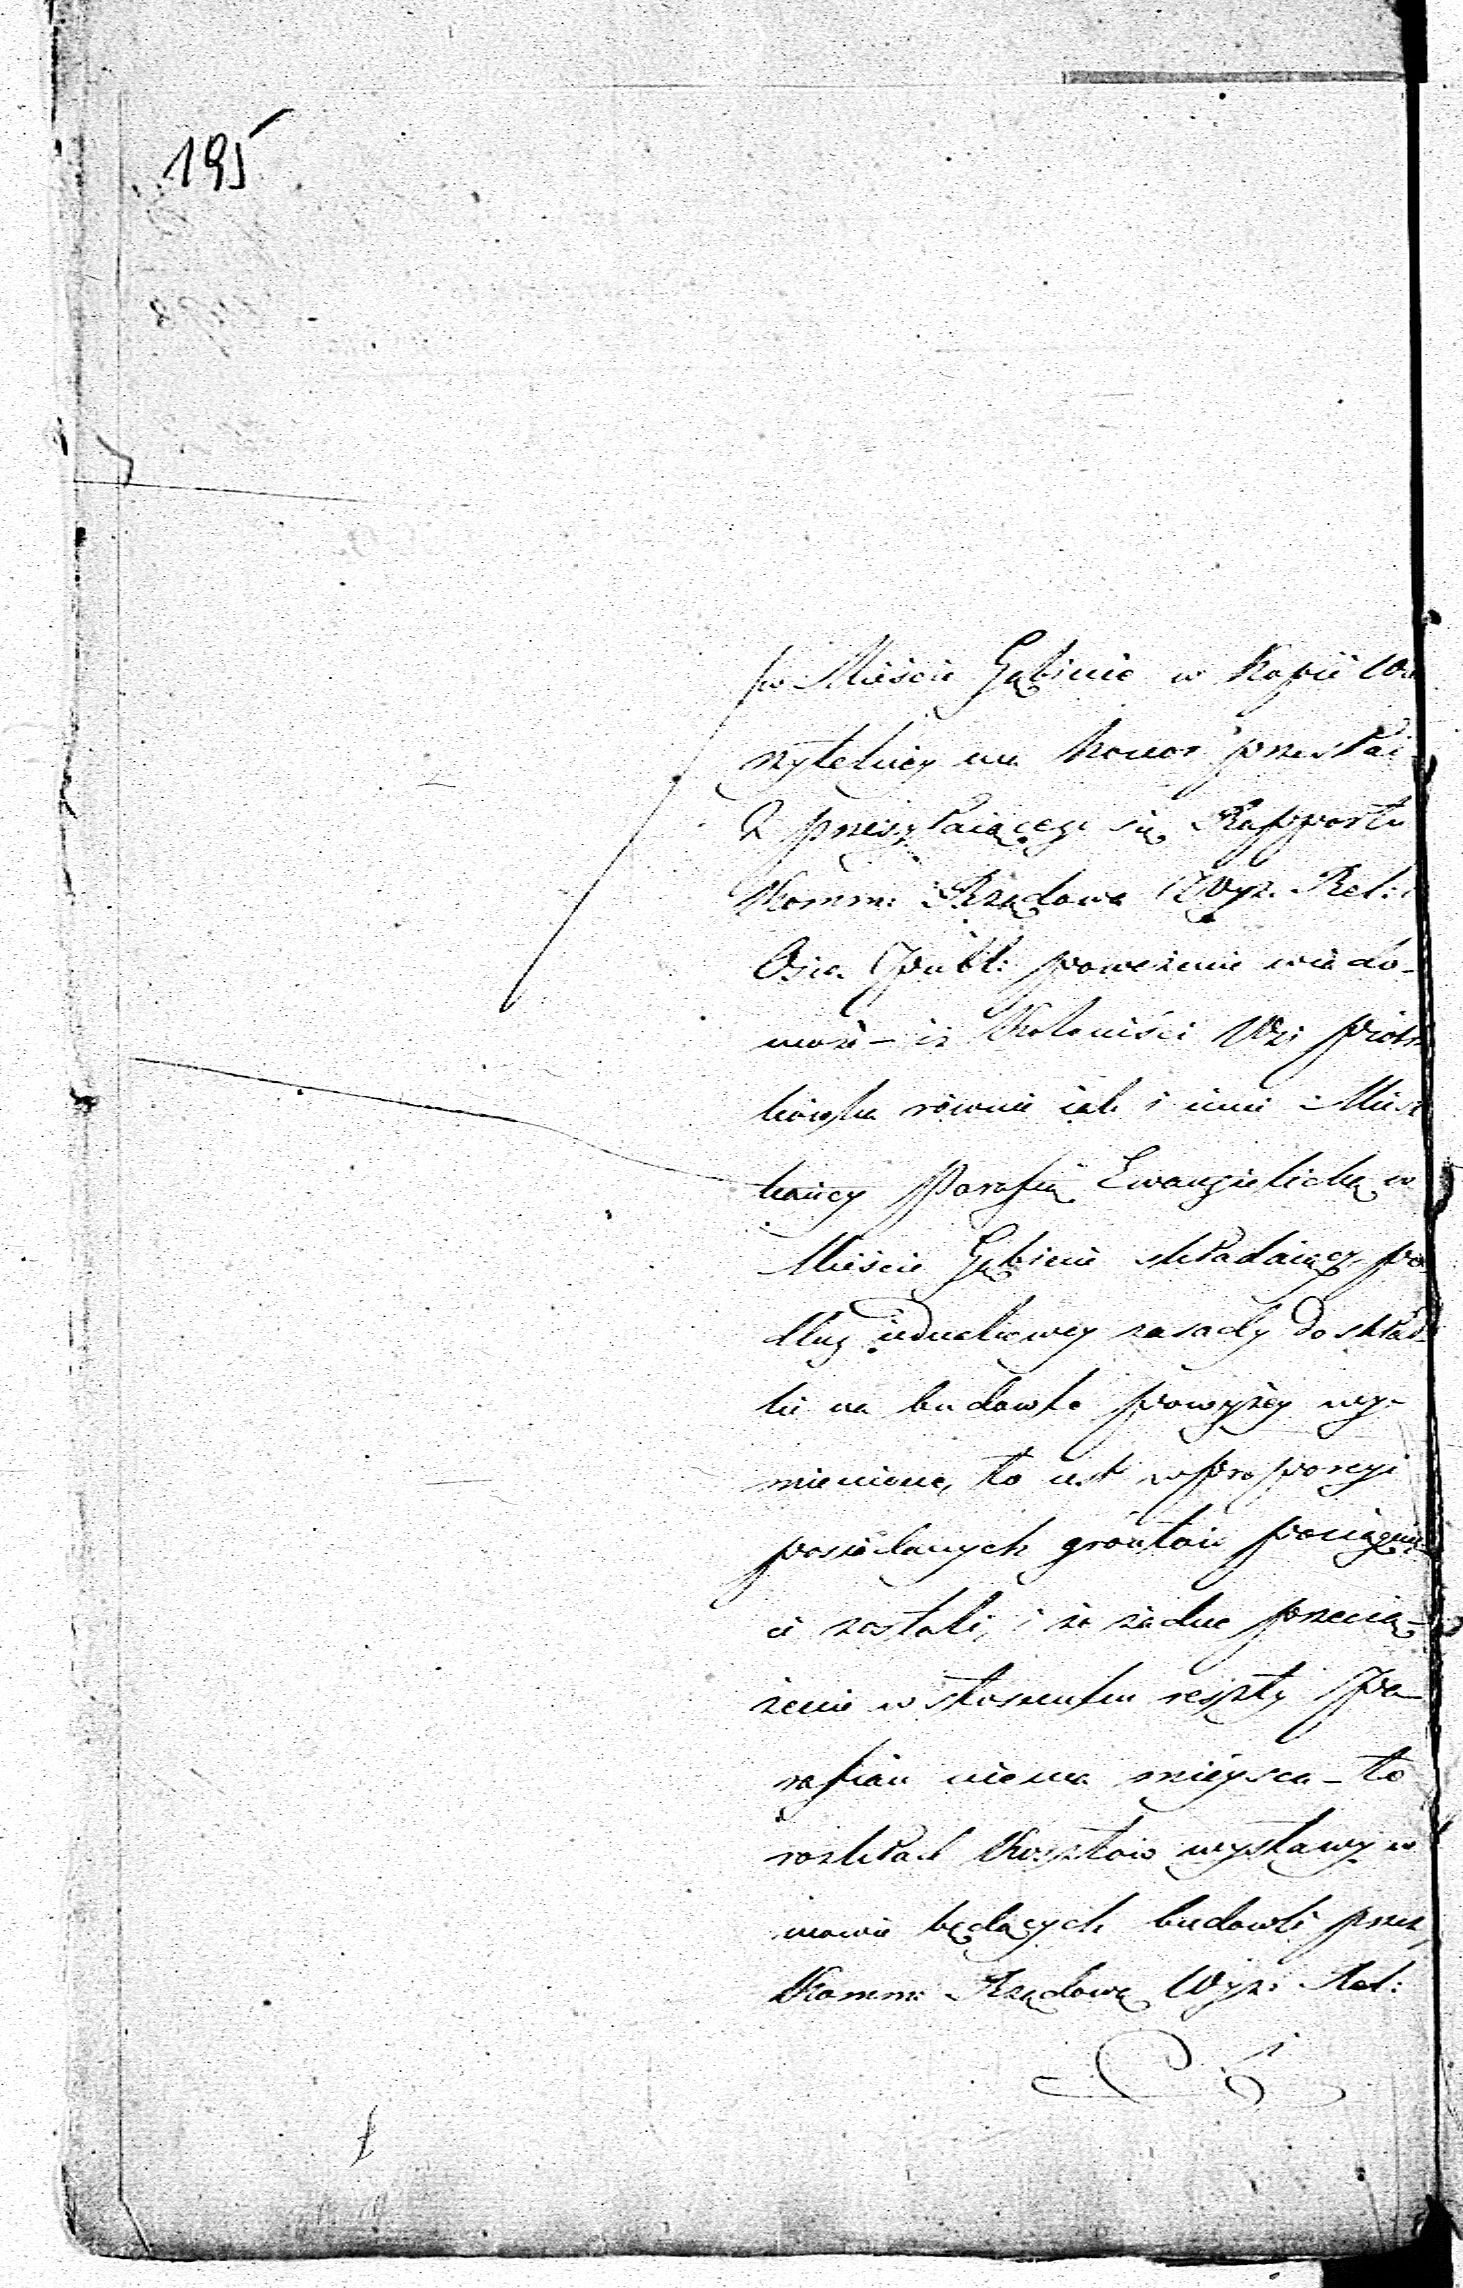 195
w Mieście Gąbinie w Kopii Wie
rzytelney ma honor przesłać
Z przesyłaiącego się Rapportu
Komm: Rządowa Wyz: Rel: i
Ośw. Publ: poweźmie wiado-
mość – iż Koloniści Wsi Piotr
kówka równie iak i inni Miesz
kańcy Parafią Ewangielicką w
Mieście Gąbinie składaiący, po
dług iednakowey zasady do skład
ki na budowle powyżey wy-
mienione, to iest w proporcyi
posiadanych gruntów pociągnię
ci zostali, i że żadne przecią-
żenie w stosunku reszty Pa-
rafian niema mieysca – to
rozkład Kosztów wystawy w
mowie będących budowli przez
Komm: Rządową Wyz: Rel: